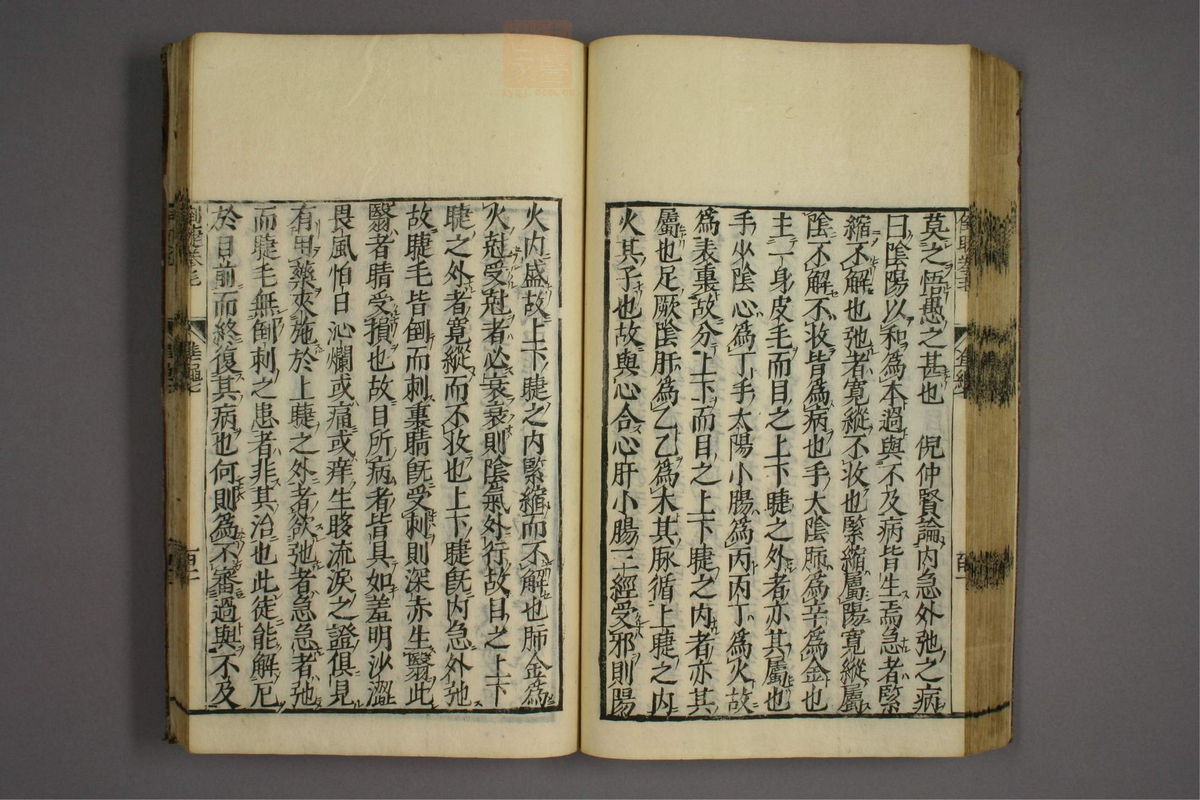 莫之悟愚之甚也　倪仲賢論内急外弛之病
曰陰陽以和爲本過與不及病皆生焉急者緊
縮不解也弛者寛縱不收也緊縮屬陽寛縱屬
陰不解不收皆爲病也手太陰肺爲辛爲金也
主一身皮毛而目之上下睫之外者亦其屬也
手少陰心爲丁手太陽小腸爲丙丙丁爲火故
爲表裏故分上下而目之上下睫之内者亦其
屬也足厥陰肝爲乙乙爲木其脉循上睫之内
火其子也故與心合心肝小腸三經受邪則陽
火内盛故上下睫之内緊縮而不解也肺金爲
火尅受尅者必衰衰則陰氣外行故目之上下
睫之外者寛縱而不收也上下睫既内急外弛
故睫毛皆倒而刺裏睛既受刺則深赤生翳此
翳者睛受損也故目所病者皆具如羞明沙澁
畏風怕日沁爛或痛或痒生眵流淚之證俱見
有用藥來施於上睫之外者欲弛者急急者弛
而睫毛無倒刺之患者非其治也此徒能解厄
於目前而終復其病也何則爲不審過與不及